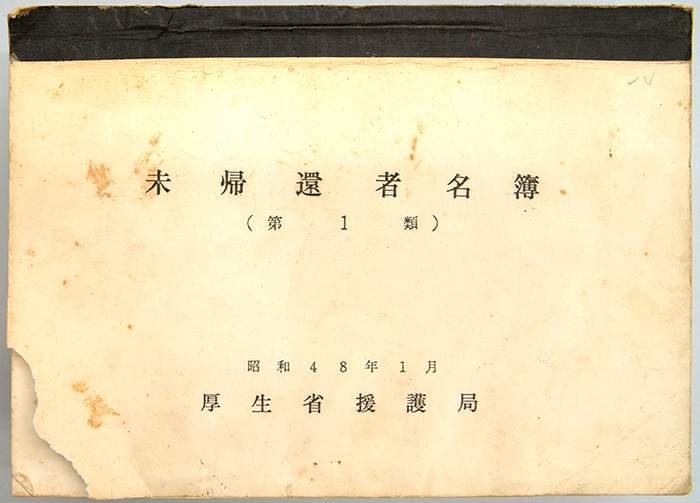 未帰還者名簿
（第1類）
昭和48年1月
厚生省援護局